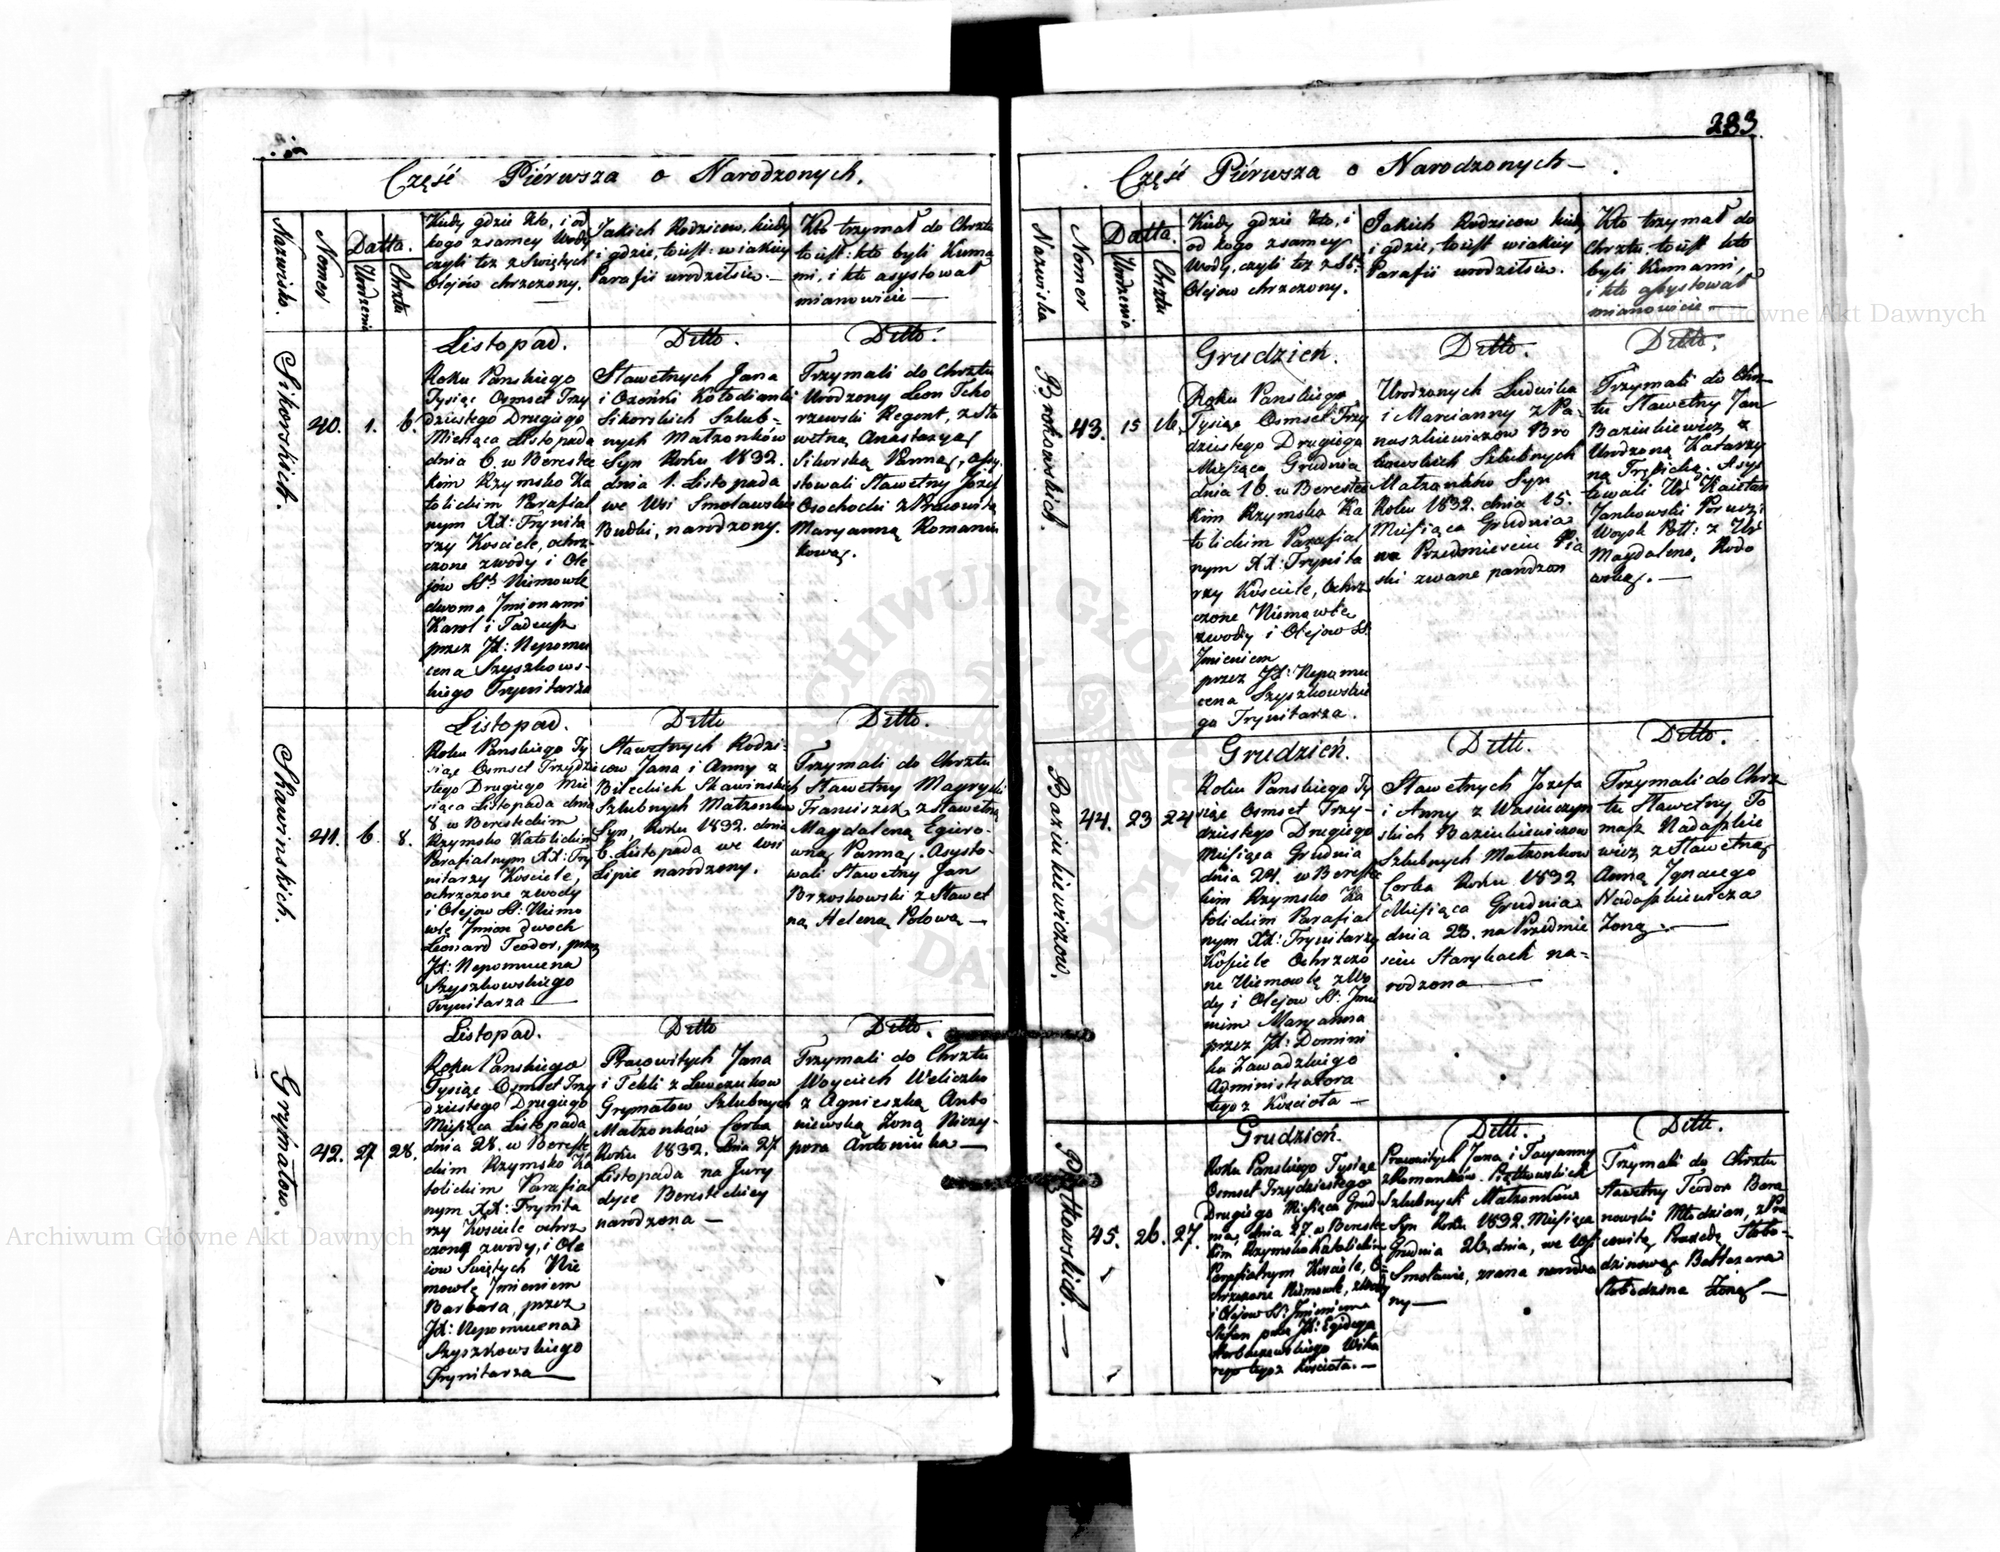 283
Część Pierwsza o Narodzonych.
Nazwisko.
Nomer
Datta.
Urodzenia
Chrztu
Kiedy gdzie kto, i od
kogo z samey Wody
czyli też z Świętych
Olejów chrzczony.
Jakich Rodzicow, kiedy
i gdzie, to iest: w iakiey
Parafii urodziłsię.
Kto trzymał do Chrztu
to iest: kto byli Kuma
mi, i kto asystował
mianowicie
Sikorskich.
40.
1.
6.
Listopad.
Roku Panskiego
Tysiąc Osmset Trzy
dziestego Drugiego
Miesiąca Listopada
dnia 6. w Bereste
ckim Rzymsko Ka
tolickim Parafial
nym XX: Trynita
rzy Kosciele, ochrz
czone zwody i Ole
jów Stch Niemowle
dwoma Jmionami
Karol i Tadeusz
przez JX: Nepomu
cena Szyszkows-
kiego Trynitarza
Ditto.
Sławetnych Jana
Sikorskich Szlub-
nych Małzonków
Syn Roku 1832.
dnia 1. Listopada
we Wsi Smolawskie
Budki, narodzony.
Ditto.
Trzymali do Chrztu
Urodzony Leon Tcho
rzewski Regent, z Sła
wetną Anastazyą
Sikorską Panną, assy
stowali Sławetny Józef
Osochocki z Pracowitą
Maryanną Romaniu
kową.
Skawinskich.
41.
6.
8.
Listopad.
Roku Panskiego Ty
siąc Osmset Trzydzie
stego Drugiego Mie
siąca Listopada dnia
8 w Beresteckim
Rzymsko Katolickim
Parafialnym XX: Try
nitarzy Kosciele,
ochrzczone zwody
i Olejow St: Niemo
wlę Jmion dwoch
Leonard Teodor, przez
JX: Nepomucena
Szyszkowskiego
Trynitarza
Ditto
Sławetnych Rodzi-
cow Jana i Anny z
Bileckich Skawinskich
Szlubnych Małzonkow
Syn, Roku 1832. dnia
6. Listopada we wsi
Lipie narodzony.
Ditto.
Trzymali do Chrztu
Sławetny Magryski
Franciszek z Sławetną
Magdaleną Egiero-
wną Panną. Asysto-
wali Sławetny Jan
Brzoskowski z Sławet
ną Heleną Polową
Grymałow.
42.
27
28.
Listopad.
Roku Panskiego
Tysiąc Osmset Trzy
dziestego Drugiego
Miesiąca Listopada
dnia 28. w Bereste
ckim Rzymsko Ka
tolickim Parafial
nym XX: Trynita
rzy Kosciele ochrz
czone zwody, i Ole
iow Swiętych Nie
mowlę Jmieniem
Barbara, przez
JX: Nepomucena
Szyszkowskiego
Trynitarza
Ditto
Pracowitych Jana
i Tekli z Lewczukow
Grymałow Szlubnych
Małzonkow Corka
Roku 1832. dnia 27
Listopada na Jury
dyce Beresteckiey
narodzona
Ditto.
Trzymali do Chrztu
Woyciech Weliczko
z Agnieszką Anto
niewską Zoną Niczy-
pora Antoniuka
Część Pierwsza o Narodzonych
Nazwiska
Nomer
Datta.
Urodzenia
Chrztu
Kiedy gdzie kto, i
od kogo z samey
Wody, czyli też z Stch
Olejow chrzczony.
Jakich Rodzicow kiedy
i gdzie, to iest w iakiey
Parafii urodziłsię.
Kto trzymał do
Chrztu, to iest kto
byli Kumami,
i kto assystował
mianowicie
Brokowskich.
43.
15
16.
Grudzień.
Roku Panskiego
Tysiąc Osmset Trzy
dziestego Drugiego
Miesiąca Grudnia
dnia 16. w Bereste
ckim Rzymsko Ka
tolickim Parafial
nym XX: Trynita
rzy Kosciele, Ochrz
czone Niemowlę
zwody i Olejow St:
Jmieniem
przez JX: Nepomu
cena Szyszkowskie
go Trynitarza.
Ditto.
Urodzonych Ludwika
i Marcianny z Pa-
naszkiewiczow Bro
kowskich Szlubnych
Małzonkow Syn
Roku 1832. dnia 15.
Miesiąca Grudnia
na Przedmiesciu Pia
ski zwane
Ditto.
Trzymali do Chrz
tu Sławetny Jan
Baziukiewicz z
Urodzoną Katarzy
ną Trepicką. Asys
towali Ur Kaietan
Jankowski
Woysk z Ur
Magdaleną Rodo
wską.
Baziukiewiczow.
44.
23
24
Grudzień.
Roku Panskiego Ty
siąc Osmset Trzy-
dziestego Drugiego
Miesiąca Grudnia
dnia 24. w Bereste
ckim Rzymsko Ka
tolickim Parafial
nym XX: Trynitarzy
Kosciele Ochrzczo
ne Niemowlę zWo
dy i Olejow St: Jmie
niem Maryanna
przez JX: Domini
ka Zawadzkiego
Administratora
tegoz Kosciola
Ditto.
Sławetnych Jozefa
i Anny z Wasinczyn
skich Baziukiewiczow
Szlubnych Małzonkow
Corka Roku 1832
Miesiąca Grudnia
dnia 23. na Przedmie
sciu Starykach na-
rodzona
Ditto.
Trzymali do Chrz
tu Sławetny To
masz Nadaszkie
wicz z Sławetną
Anną Jgnacego
Nadaszkiewicza
Zoną.
Piętkowskich.
45.
26.
27.
Grudzień.
Roku Panskiego Tysiąc
Osmset Trzydziestego
Drugiego Miesiąca Grud
nia, dnia 27. w Bereste
ckim Rzymsko Katolickim
Parafialnym Kosciele, O-
chrzczone Niemowle, zwody
i Olejow St: Jmieniem
Stefan przez JX: Egidego
Wika
rego tegoz Kosciola.
Ditto.
Pracowitych Jana i Tacyanny
z Romanków Piętkowskich
Szlubnych Małzonków
Syn Roku 1832. Miesiąca
Grudnia 26. dnia, we Wsi
Smolawie, zrana narodzo
ny
Ditto.
Trzymali do Chrztu
Sławetny Teodor Bara
nowski Młodzian, z Pra
cowitą Slobo-
dzinową Baltazara
Slobodzina Zoną
Archiwum Główne Akt Dawnych
Archiwum Główne Akt Dawnych
ARCHIWUM GŁÓWNE AKT DAWNYCH